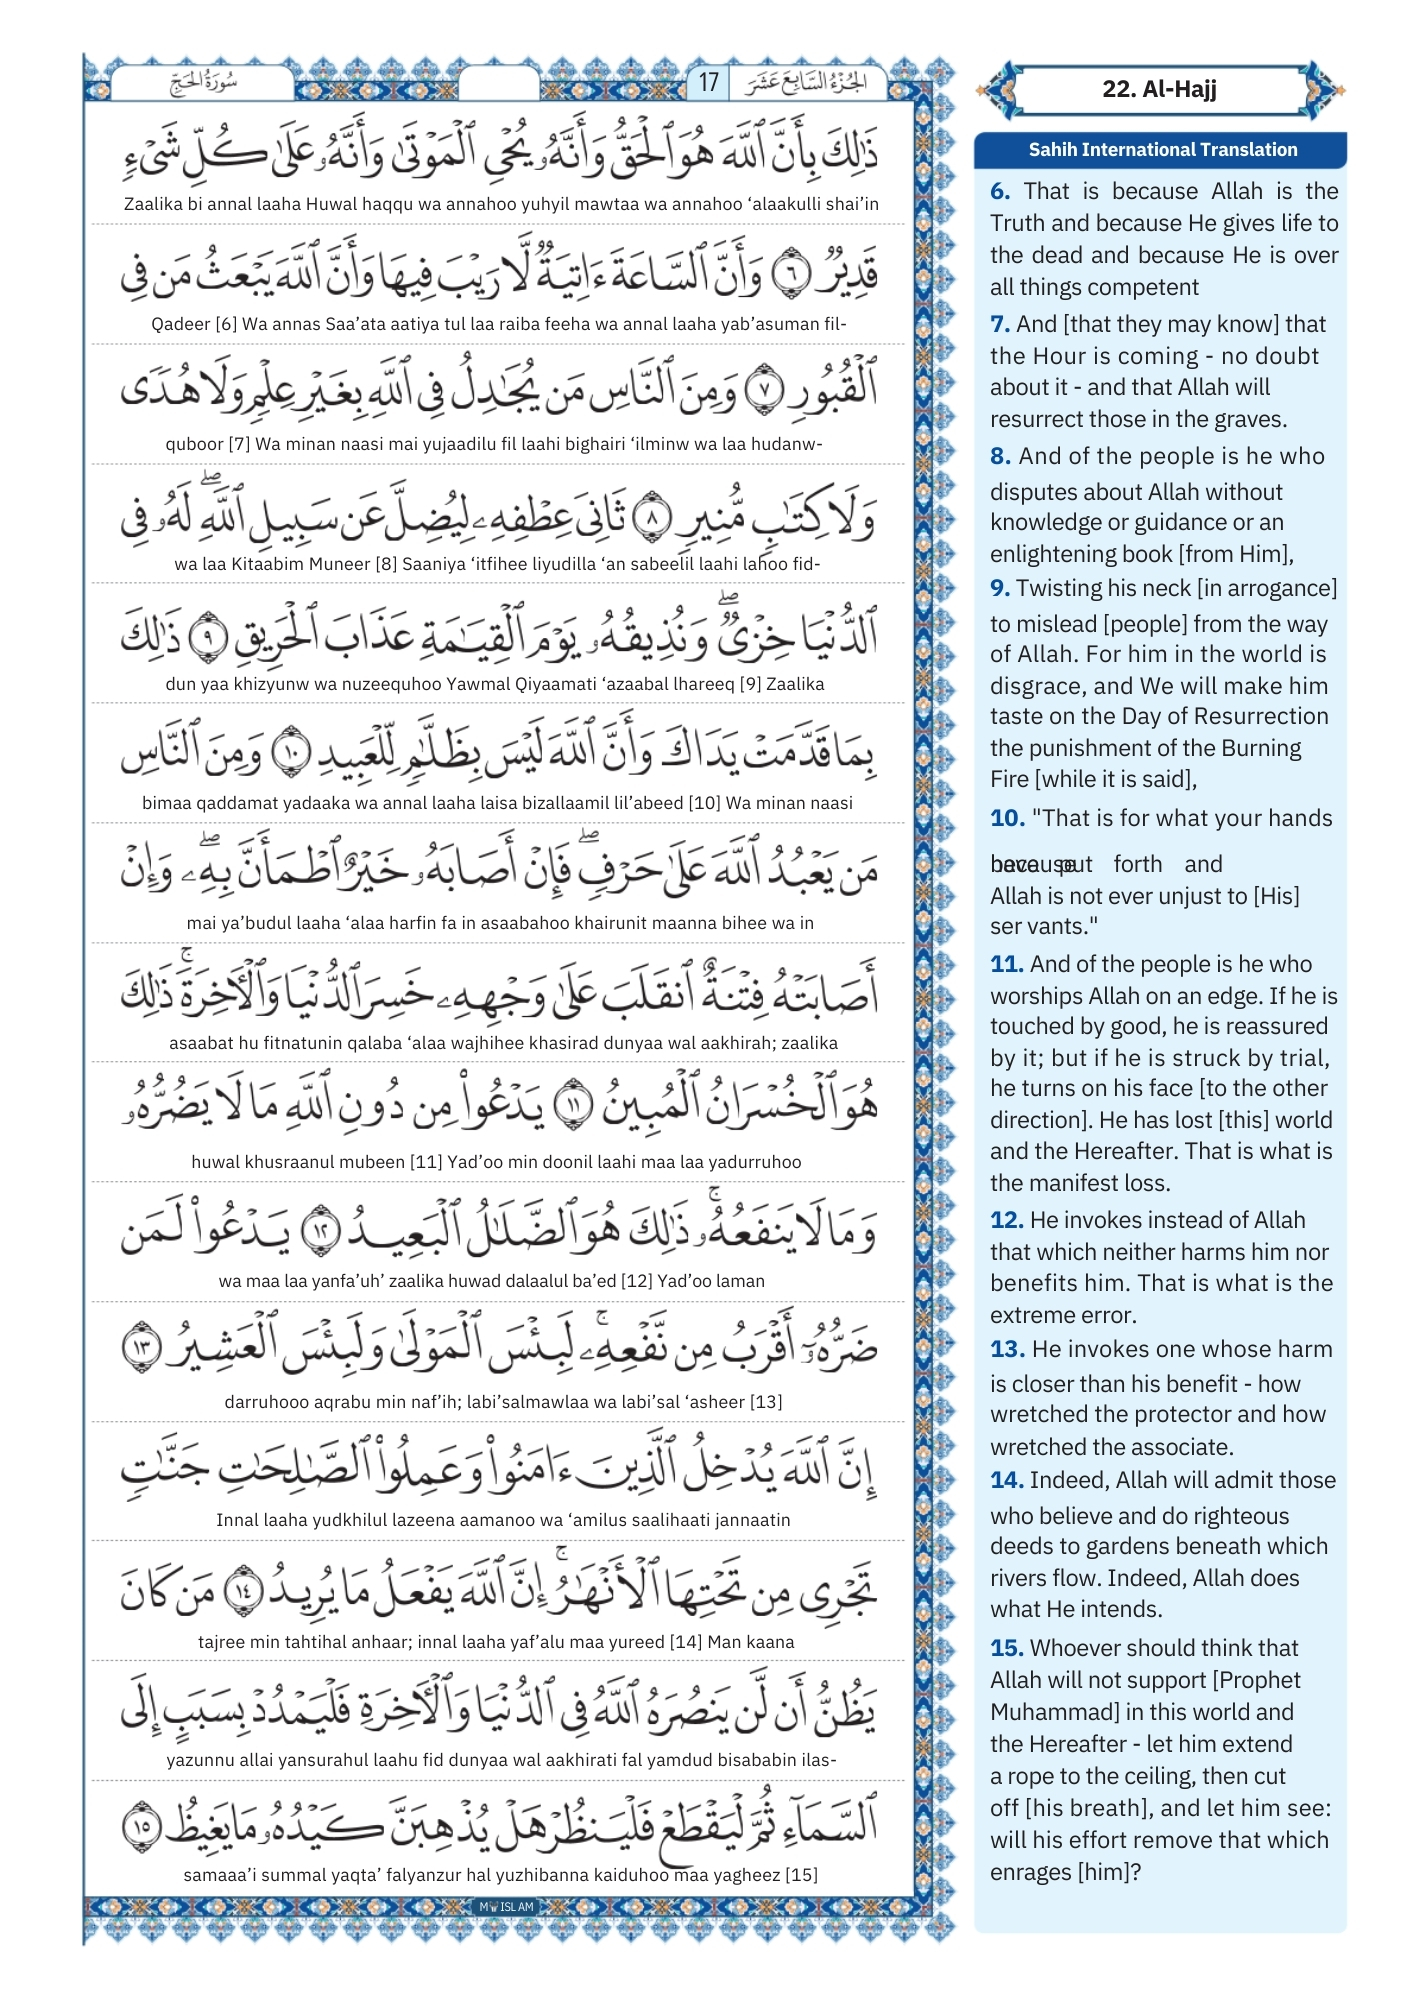 سُورَةُ الحَجّ
17
الجُزءُ السَّابِعَ عَشَرَ
ذَٰلِكَ بِأَنَّ ٱللَّهَ هُوَ ٱلْحَقُّ وَأَنَّهُۥ يُحْىِ ٱلْمَوْتَىٰ وَأَنَّهُۥ عَلَىٰ كُلِّ شَىْءٍ
Zaalika bi annal laaha Huwal haqqu wa annahoo yuhyil mawtaa wa annahoo ‘alaakulli shai’in
قَدِيرٌ ٦ وَأَنَّ ٱلسَّاعَةَ ءَاتِيَةٌ لَّا رَيْبَ فِيهَا وَأَنَّ ٱللَّهَ يَبْعَثُ مَن فِى
Qadeer [6] Wa annas Saa’ata aatiya tul laa raiba feeha wa annal laaha yab’asuman fil-
ٱلْقُبُورِ ٧ وَمِنَ ٱلنَّاسِ مَن يُجَٰدِلُ فِى ٱللَّهِ بِغَيْرِ عِلْمٍ وَلَا هُدًى
quboor [7] Wa minan naasi mai yujaadilu fil laahi bighairi ‘ilminw wa laa hudanw-
وَلَا كِتَٰبٍ مُّنِيرٍ ٨ ثَانِىَ عِطْفِهِۦ لِيُضِلَّ عَن سَبِيلِ ٱللَّهِ ۖ لَهُۥ فِى
wa laa Kitaabim Muneer [8] Saaniya ‘itfihee liyudilla ‘an sabeelil laahi lahoo fid-
ٱلدُّنْيَا خِزْىٌ ۖ وَنُذِيقُهُۥ يَوْمَ ٱلْقِيَٰمَةِ عَذَابَ ٱلْحَرِيقِ ٩ ذَٰلِكَ
dun yaa khizyunw wa nuzeequhoo Yawmal Qiyaamati ‘azaabal lhareeq [9] Zaalika
بِمَا قَدَّمَتْ يَدَاكَ وَأَنَّ ٱللَّهَ لَيْسَ بِظَلَّٰمٍ لِّلْعَبِيدِ ١٠ وَمِنَ ٱلنَّاسِ
bimaa qaddamat yadaaka wa annal laaha laisa bizallaamil lil’abeed [10] Wa minan naasi
مَن يَعْبُدُ ٱللَّهَ عَلَىٰ حَرْفٍ ۖ فَإِنْ أَصَابَهُۥ خَيْرٌ ٱطْمَأَنَّ بِهِۦ ۖ وَإِنْ
mai ya’budul laaha ‘alaa harfin fa in asaabahoo khairunit maanna bihee wa in
أَصَابَتْهُ فِتْنَةٌ ٱنقَلَبَ عَلَىٰ وَجْهِهِۦ خَسِرَ ٱلدُّنْيَا وَٱلْءَاخِرَةَ ۚ ذَٰلِكَ
asaabat hu fitnatunin qalaba ‘alaa wajhihee khasirad dunyaa wal aakhirah; zaalika
هُوَ ٱلْخُسْرَانُ ٱلْمُبِينُ ١١ يَدْعُوا۟ مِن دُونِ ٱللَّهِ مَا لَا يَضُرُّهُۥ
huwal khusraanul mubeen [11] Yad’oo min doonil laahi maa laa yadurruhoo
وَمَا لَا يَنفَعُهُۥ ۚ ذَٰلِكَ هُوَ ٱلضَّلَٰلُ ٱلْبَعِيدُ ١٢ يَدْعُوا۟ لَمَن
wa maa laa yanfa’uh’ zaalika huwad dalaalul ba’ed [12] Yad’oo laman
ضَرُّهُۥٓ أَقْرَبُ مِن نَّفْعِهِۦ ۚ لَبِئْسَ ٱلْمَوْلَىٰ وَلَبِئْسَ ٱلْعَشِيرُ ١٣
darruhooo aqrabu min naf’ih; labi’salmawlaa wa labi’sal ‘asheer [13]
إِنَّ ٱللَّهَ يُدْخِلُ ٱلَّذِينَ ءَامَنُوا۟ وَعَمِلُوا۟ ٱلصَّٰلِحَٰتِ جَنَّٰتٍ
Innal laaha yudkhilul lazeena aamanoo wa ‘amilus saalihaati jannaatin
تَجْرِى مِن تَحْتِهَا ٱلْأَنْهَٰرُ ۚ إِنَّ ٱللَّهَ يَفْعَلُ مَا يُرِيدُ ١٤ مَن كَانَ
tajree min tahtihal anhaar; innal laaha yaf’alu maa yureed [14] Man kaana
يَظُنُّ أَن لَّن يَنصُرَهُ ٱللَّهُ فِى ٱلدُّنْيَا وَٱلْءَاخِرَةِ فَلْيَمْدُدْ بِسَبَبٍ إِلَى
yazunnu allai yansurahul laahu fid dunyaa wal aakhirati fal yamdud bisababin ilas-
ٱلسَّمَآءِ ثُمَّ لْيَقْطَعْ فَلْيَنظُرْ هَلْ يُذْهِبَنَّ كَيْدُهُۥ مَا يَغِيظُ ١٥
samaaa’i summal yaqta’ falyanzur hal yuzhibanna kaiduhoo maa yagheez [15]
MY ISLAM
22. Al-Hajj
Sahih International Translation
6. That is because Allah is the
Truth and because He gives life to
the dead and because He is over
all things competent
7. And [that they may know] that
the Hour is coming - no doubt
about it - and that Allah will
resurrect those in the graves.
8. And of the people is he who
disputes about Allah without
knowledge or guidance or an
enlightening book [from Him],
9. Twisting his neck [in arrogance]
to mislead [people] from the way
of Allah. For him in the world is
disgrace, and We will make him
taste on the Day of Resurrection
the punishment of the Burning
Fire [while it is said],
10. "That is for what your hands
have put forth and because
Allah is not ever unjust to [His]
ser vants."
11. And of the people is he who
worships Allah on an edge. If he is
touched by good, he is reassured
by it; but if he is struck by trial,
he turns on his face [to the other
direction]. He has lost [this] world
and the Hereafter. That is what is
the manifest loss.
12. He invokes instead of Allah
that which neither harms him nor
benefits him. That is what is the
extreme error.
13. He invokes one whose harm
is closer than his benefit - how
wretched the protector and how
wretched the associate.
14. Indeed, Allah will admit those
who believe and do righteous
deeds to gardens beneath which
rivers flow. Indeed, Allah does
what He intends.
15. Whoever should think that
Allah will not support [Prophet
Muhammad] in this world and
the Hereafter - let him extend
a rope to the ceiling, then cut
off [his breath], and let him see:
will his effort remove that which
enrages [him]?